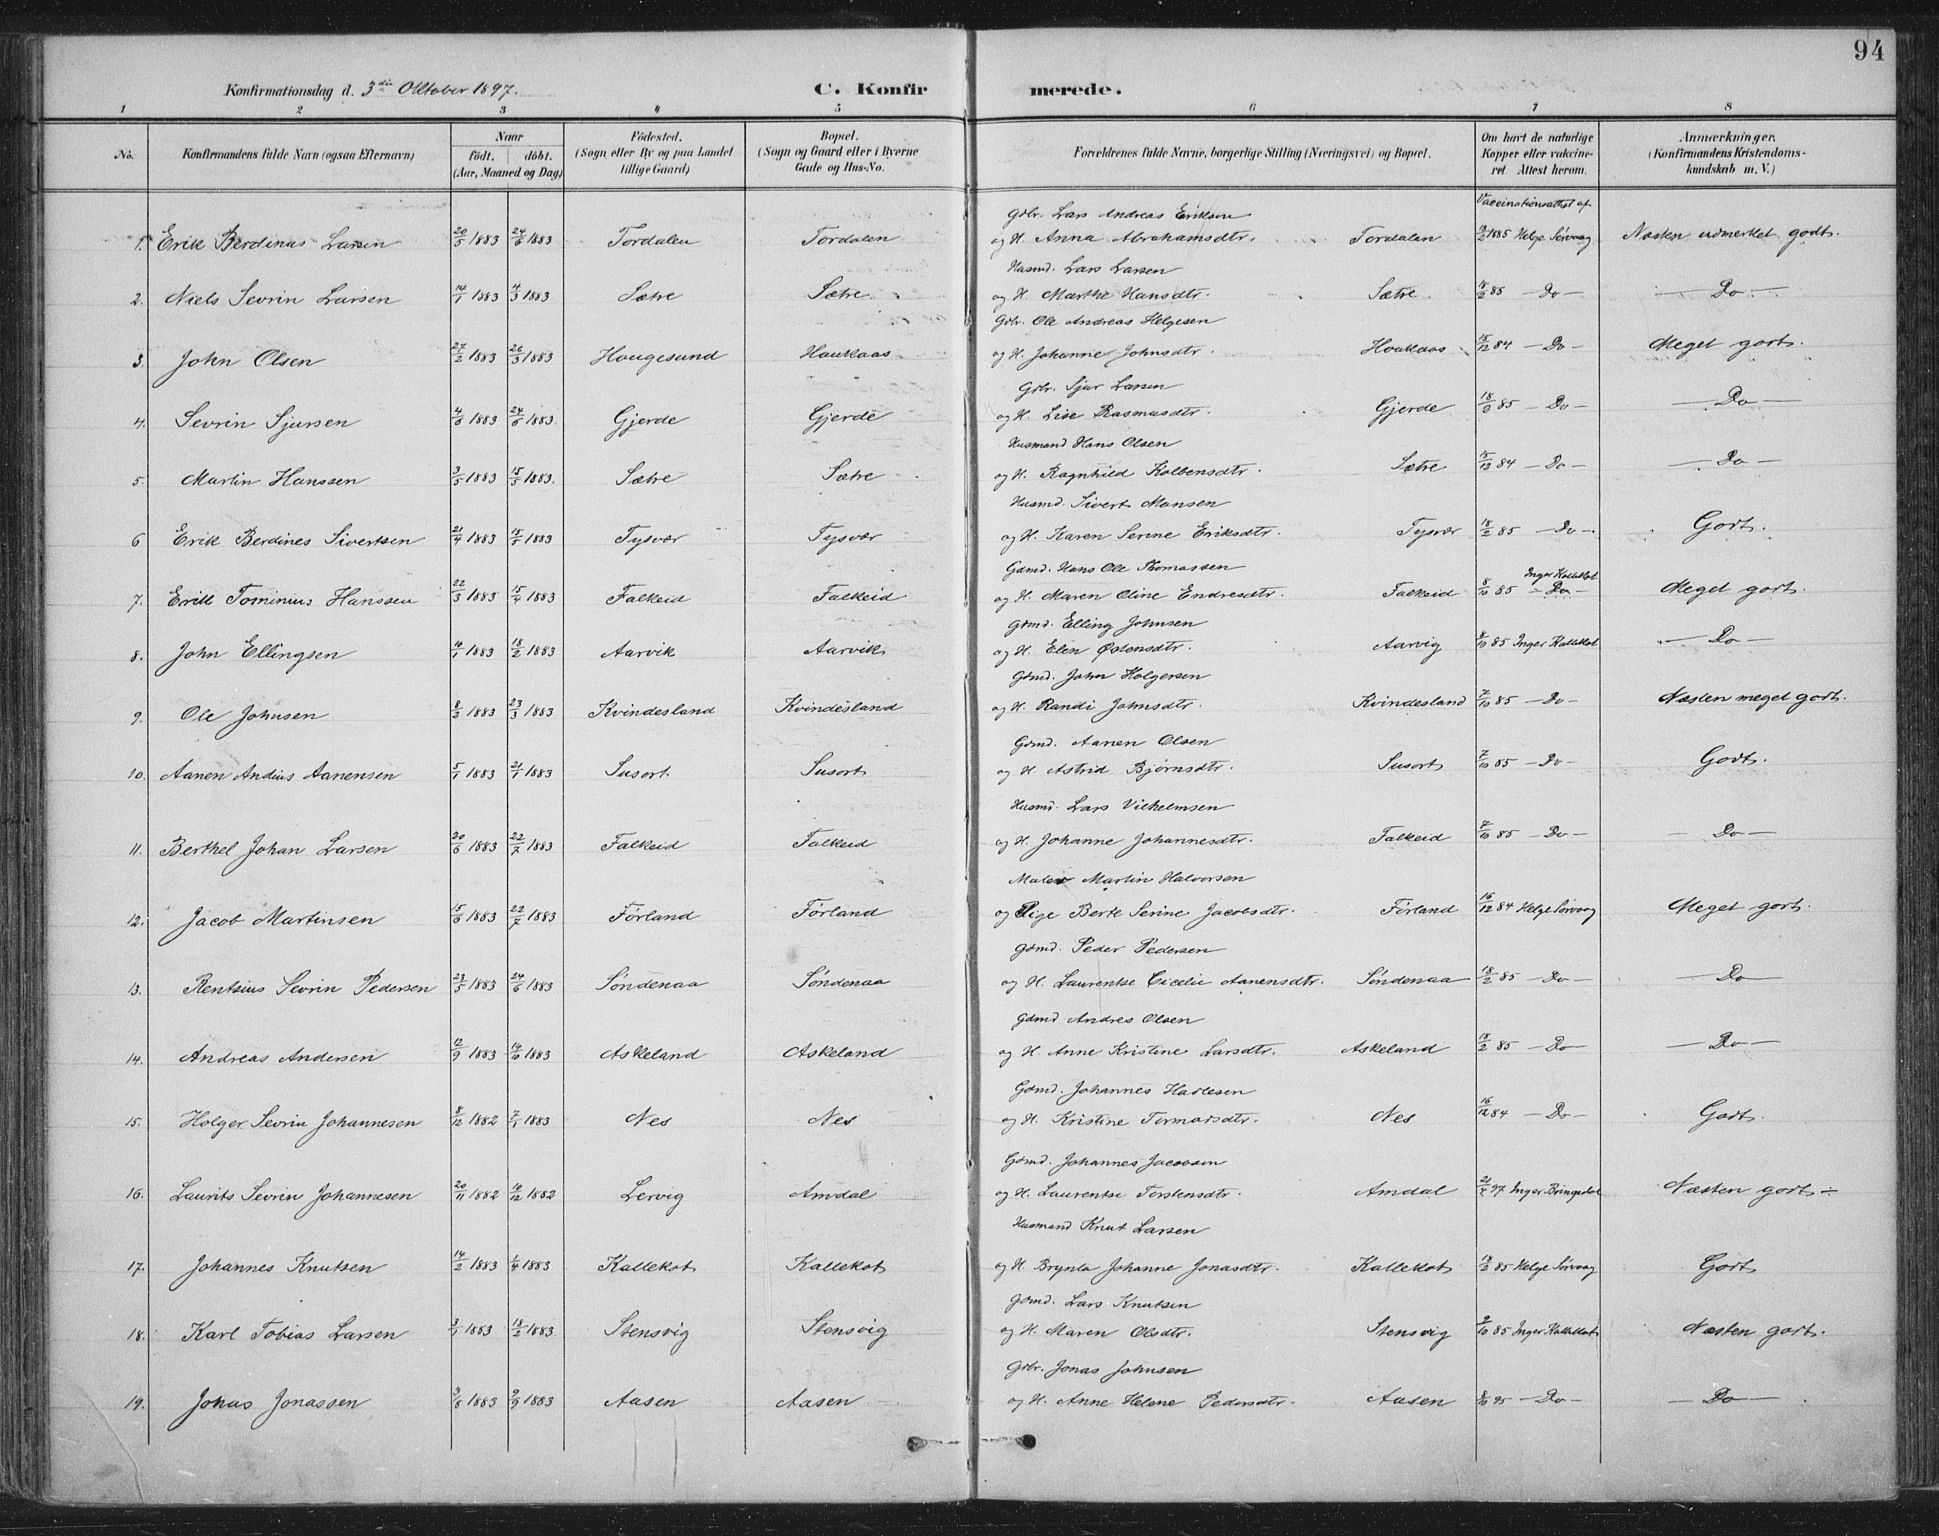 94
Konfirmationsdag d. 3die Oktober 1897. C. Konfirmerede.
1 2 3 4 5 6 7 8
No. Konfirmandens fulde Navn (ogsaa Efternavn) Naar født. døbt. (Aar, Maaned og Dag) Fødested. (Sogn eller By og paa Landet tillige Gaard) Bopæl. (Sogn og Gaard eller i Byerne Gade og Hus-No. Forældrenes fulde Navne, borgerlige Stilling (Næringsvei) og Bopæl. Om havt de naturlige Kopper eller vakcineret Attest herom. Anmærkninger. (Konfirmandens Kristendomskundskab m. V.)
Vaccinationsattest af
Gbr. Lars Andreas Eriksen
1. Erik Berdinus Larsen 20/5 1883 24/6 1883 Tordalen Tordalen og H. Anna Abrahamsdtr. Tordalen 18/2 1885 Helge Sørvaag Næsten udmerket godt.
Husmd. Lars Larsen
2. Niels Sevrin Larsen 14/1 1883 4/3 1883 Sætre Sætre og H. Marthe Hansdtr. Sætre 18/2 85 - Do - - Do -
Gbr. Ole Andreas Helgesen
3. John Olsen 27/2 1883 26/3 1883 Haugesund Haukaas og H. Johanne Johnsdtr. Haukaas 15/12 84 - Do - Meget godt.
Gbr. Sjur Larsen
4. Sevrin Sjursen 4/6 1883 24/6 1883. Gjerde Gjerde og H. Lise Rasmusdtr. Gjerde 18/2 85 - Do - - Do -
Husmand Hans Olsen
5. Martin Hanssen 3/5 1883 15/5 1883. Sætre Sætre og H. Ragnhild Kolbensdtr. Sætre 15/12 84 - Do - - Do -
Husmd. Sivert Monsen
6 Erik Berdines Sivertsen 21/4 1883 15/5 1883 Tysvær Tysvær og H. Karen Serine Eriksdtr. Tysvær 18/2 85 - Do - Godt.
Gdmd. Hans Ole Thomassen
7. Erik Tominius Hanssen 22/3 1883 15/4 1883 Falkeid Falkeid og H. Maren Oline Endresdtr. Falkeid 8/10 85 Inger Kallekot - Do - Meget godt.
Gdmd. Elling Johnsen
8. John Ellingsen 14/1 1883 18/2 1883 Aarvik Aarvik og H. Elen Østensdtr. Aarvig 8/10 85 Inger Kallekot - Do -
Gdmd. John Holgersen
9. Ole Johnsen 8/3 1883 23/3 1883 Kvindesland Kvindesland og H. Randi Johnsdtr. Kvindesland 7/10 85 - Do - Næsten meget godt.
Gdmd. Aanen Olsen
10. Aanen Andius Aanensen 5/1 1883 21/1 1883 Susort Susort og H Astrid Bjørnsdtr. Susort 7/10 85 - Do - Godt.
Husmd. Lars Vilhelmsen
11. Berthel Johan Larsen 20/6 1883 22/7 1883 Falkeid Falkeid og H. Johanne Johannesdtr. Falkeid 7/10 85 - Do - - Do -
Maler Martin Halvorsen
12. Jacob Martinsen 15/6 1883 22/7 1883 Førland Førland og Pige Berte Serine Jacobsdtr. Førland 16/12 84 Helge Sørvaag Meget godt.
Gdmd. Peder Pedersen
13. Rentsius Sevrin Pedersen 23/5 1883 24/6 1883 Søndenaa Søndenaa og H. Laurentse Cicelie Aanensdtr. Søndenaa 18/2 85 - Do - - Do -
Gdmd Andres Olsen
14. Andreas Andersen 12/9 1883 14/10 1883 Askeland Askeland og H Anne Kristine Larsdtr. Askeland 18/2 85 - Do - - Do -
Gdmd. Johannes Harlesen
15. Holger Sevrin Johannesen 8/12 1882 7/1 1883 Nes Nes og H. Kristine Tormodsdtr. Nes 16/12 84 - Do - Godt.
Gdmd. Johannes Jacobsen
16. Laurits Sevrin Johannesen 20/11 1882 10/12 1882 Lervig Amdal og H. Laurentse Torstensdtr. Amdal 21/7 97 Inger Bringedal Næsten godt ÷
Husmand Knut Larsen
17. Johannes Knutsen 14/2 1883 1/4 1883 Kallekot Kallekot og H. Brynla Johanne Jonasdtr. Kallekot 18/2 85 Helge Sørvaag Godt
Gdmd. Lars Knutsen
18. Karl Tobias Larsen 3/1 1883 18/2 1883 Stensvig Stensvig og H. Maren Olsdtr. Stensvig 9/10 85 Inger Kallekot Næsten godt.
Gbr. Jonas Johnsen
19. Johas Jonassen 3/8 1883 9/9 1883 Aasen Aasen og H. Anne Helene Pedersdtr. Aasen 8/10 95 - Do - - Do -